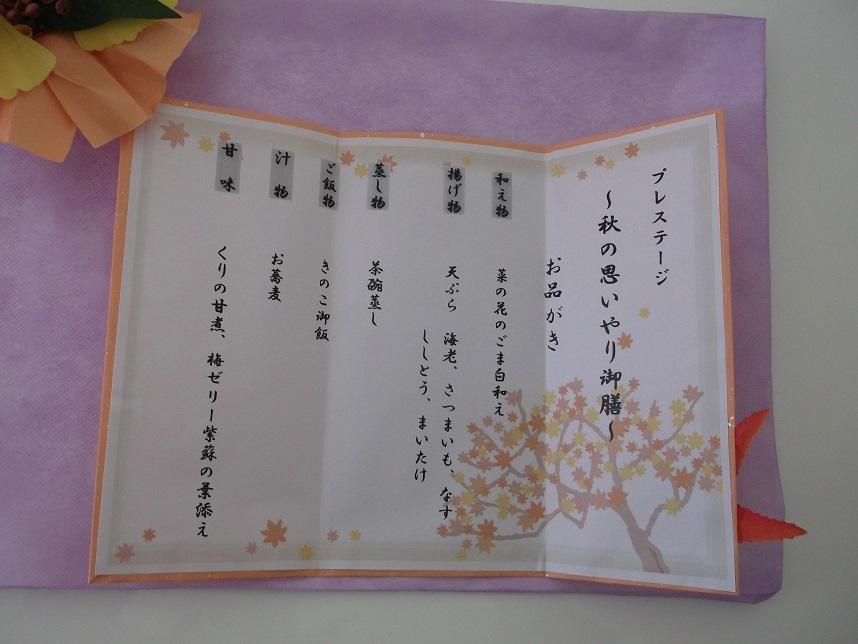 プレステージ
～秋の思いやり御膳～
お品がき
和え物　菜の花のごま白和え
揚げ物　天ぷら　海老、さつまいも、なす
ししとう、まいたけ
蒸し物　茶碗蒸し
ご飯物　きのこ御飯
汁物　お蕎麦
甘味　くりの甘煮、梅ゼリー紫蘇の葉添え